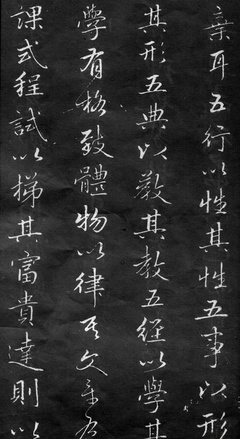 棄耳五行以性其性五事以形
其形五典以教其教五經以學其
學有格致體物以律其文章
課式程試以梯其富貴達則以